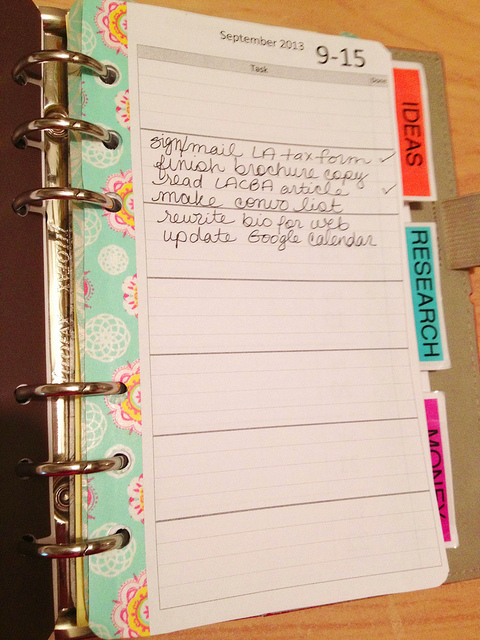 September 2013 9-15
Task Done
sign/mail LA tax form ✓
finish brochure copy
read LACBA article ✓
make convo list
rewrite bio for web
update Google Calendar
IDEAS
RESEARCH
MONEY